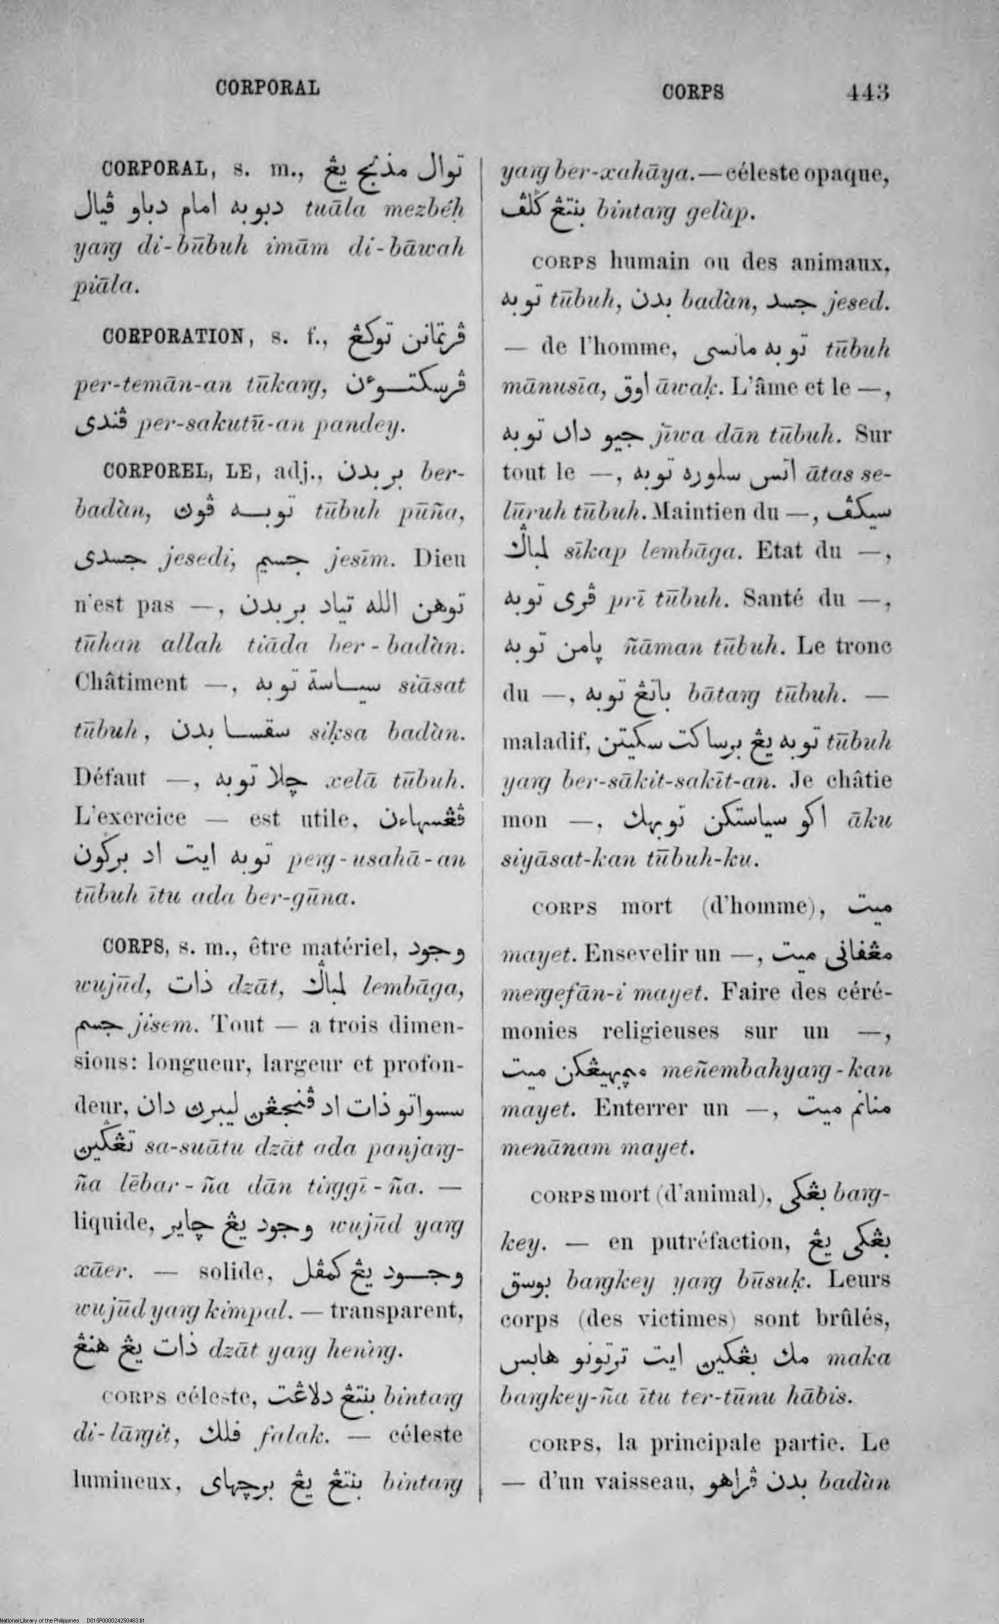 CORPORAL
CORPS 443
CORPORAL, s. m., توال مذبح يڠ
دبوبه امام دباو ڤيال tuāla mezbéḥ
yaṛg di-būbuh imām di-bāwah
piāla.
CORPORATION, s. f., ڤرتمانن توكڠ
per-temān-an tūkaṛg, ڤرسكتوءن
ڤندى per-sakutū-an pandey.
CORPOREL, LE, adj., بر بدن ber-
badàn, توبه ڤون tūbuh pūña,
جسدى jesedi, جسيم jesīm. Dieu
n'est pas —, توهن الله تياد بر بدن
tūhan allah tiāda ber-badàn.
Châtiment —, سياسة توبه siāsat
tūbuh, سقسا بدن siḳsa badàn.
Défaut —, چلا توبه xelā tūbuh.
L'exercice — est utile, ڤڠسهاءن
توبه ايت اد برگون peṛg-usahā-an
tūbuh ītu ada ber-gūna.
CORPS, s. m., être matériel, وجود
wujūd, ذات dzāt, لمباݢ lembāga,
جسم jisem. Tout — a trois dimen-
sions: longueur, largeur et profon-
deur, سسواتو ذات اد ڤنجڠن ليبرن دان
تڠگين sa-suātu dzāt ada panjaṛg-
ña lēbar-ña dān tiṛggī-ña. —
liquide, وجود يڠ چاير wujūd yaṛg
xāer. — solide, وجود يڠ كمڤل
wujūd yaṛg kimpal. — transparent,
ذات يڠ هنڠ dzāt yaṛg heniṛg.
CORPS céleste, بنتڠ دلاڠت bintaṛg
di-lāṛgit, فلك falak. — céleste
lumineux, بنتڠ يڠ برچهاى bintaṛg
yaṛg ber-xahāya. — céleste opaque,
بنتڠ گلڤ bintaṛg gelàp.
CORPS humain ou des animaux,
توبه tūbuh, بدن badàn, جسد jesed.
— de l'homme, توبه مانسى tūbuh
mānusīa, اوق āwaḳ. L'âme et le —,
جيو دان توبه jīwa dān tūbuh. Sur
tout le —, اتس سلوره توبه ātas se-
lūruh tūbuh. Maintien du —, سيكڤ
لمباݢ sīkap lembāga. Etat du —,
ڤرى توبه prī tūbuh. Santé du —,
ڽامن توبه ñāman tūbuh. Le tronc
du —, باتڠ توبه bātaṛg tūbuh. —
maladif, توبه يڠ برساكت سكيتن tūbuh
yaṛg ber-sākit-sakīt-an. Je châtie
mon —, اكو سياستكن توبهك āku
siyāsat-kan tūbuh-ku.
CORPS mort (d'homme), ميت
mayet. Ensevelir un —, مڠفانى ميت
meṛgefān-i mayet. Faire des céré-
monies religieuses sur un —,
مڽمبهيڠكن ميت meñembahyaṛg-kan
mayet. Enterrer un —, منانم ميت
menānam mayet.
CORPS mort (d'animal), بڠكى baṛg-
key. — en putréfaction, بڠكى يڠ
بوسق baṛgkey yaṛg būsuḳ. Leurs
corps (des victimes) sont brûlés,
مك بڠكين ايت ترتونو هابس maka
baṛgkey-ña ītu ter-tūnu hābis.
CORPS, la principale partie. Le
— d'un vaisseau, بدن ڤراهو badàn
National Library of the Philippines